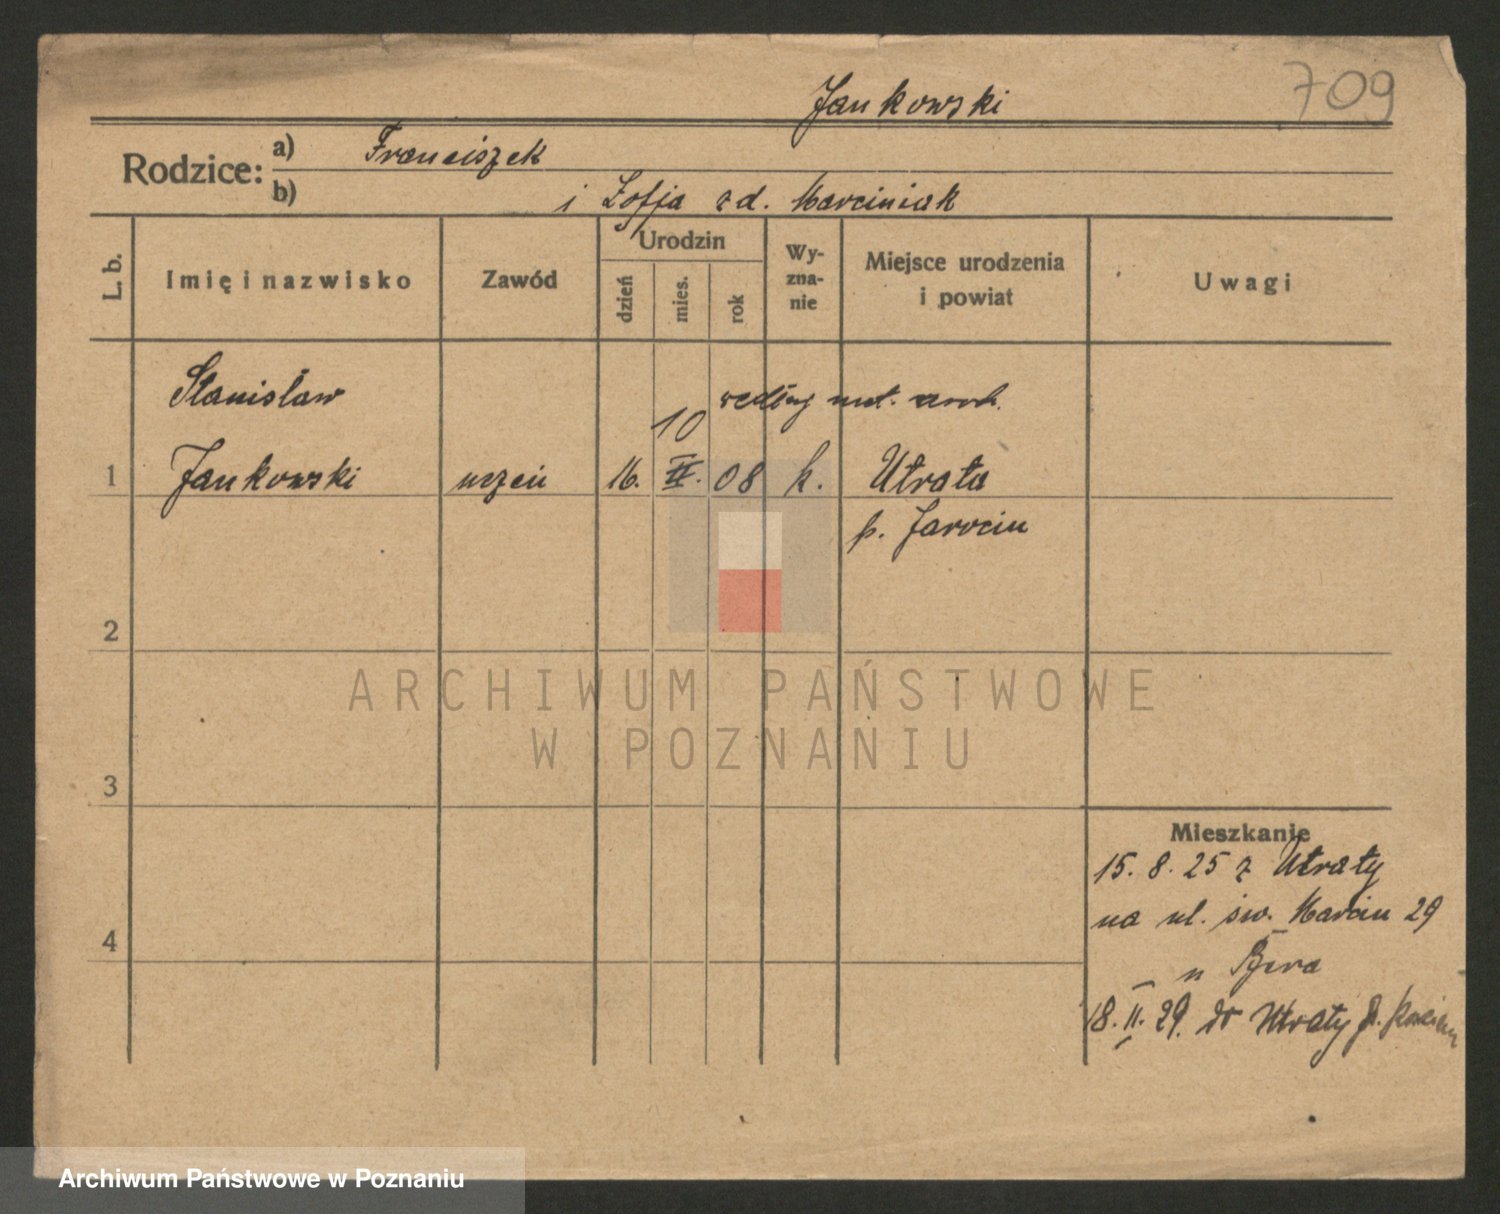 709
Jankowski
Rodzice: a) Franciszek
b) i Zofja zd. Marciniak
L. b.
Imię i nazwisko
Zawód
Urodzin
dzień
mies.
rok
Wy-
zna-
nie
Miejsce urodzenia
i powiat
Uwagi
Stanisław
według met. 
10
1 Jankowski uczeń 16. II. 08 k. Utrata
p. Jarocin
2
3
4
Mieszkanie
15. 8. 25 z Utraty
na ul. św. Marcin 29
u
18. II. 29. do Utraty p.
ARCHIWUM PAŃSTWOWE
W POZNANIU
Archiwum Państwowe w Poznaniu